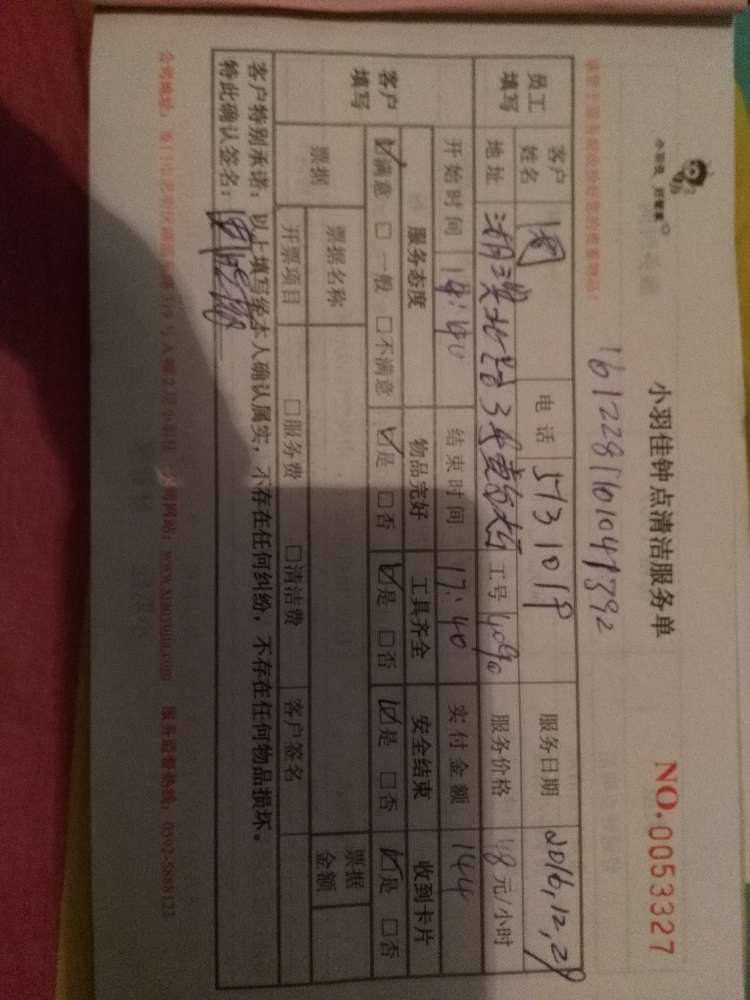 小羽佳 好管家
小羽佳钟点清洁服务单
NO.0053327
161228161041392
员工填写 客户姓名 电话 服务日期 2016,12,29
地址 工号 服务价格 18元/小时
客户填写 开始时间 14:40 结束时间 17:40 实付金额 144
服务态度 物品完好 工具齐全 安全结束 收到卡片
☑满意 □一般 □不满意 ☑是 □否 ☑是 □否 ☑是 □否 ☑是 □否
票据 票据名称 票据金额
开票项目 □服务费 □清洁费 客户签名
客户特别承诺：以上填写经本人确认属实，不存在任何纠纷，不存在任何物品损坏。
特此确认签名：
公司网站：www.xiaoyujia.com 服务监督热线：0592-5888123